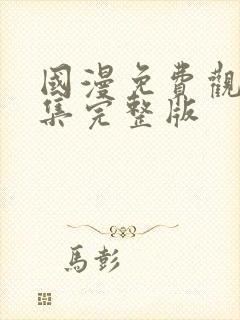 國漫免費觀
集完整版
馬彭